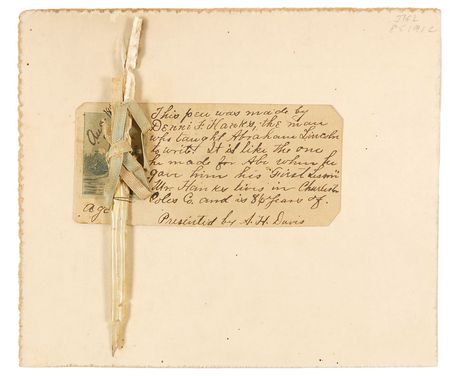 This pen was made by
Dennis F. Hanks, the man
who taught Abraham Lincoln
to write. It is like the one
he made for Abe when he
gave him his "First Lesson"
Mr Hanks lives in Charleston
Coles Co. and is 86 years of
age
Presented by A. H. Davis